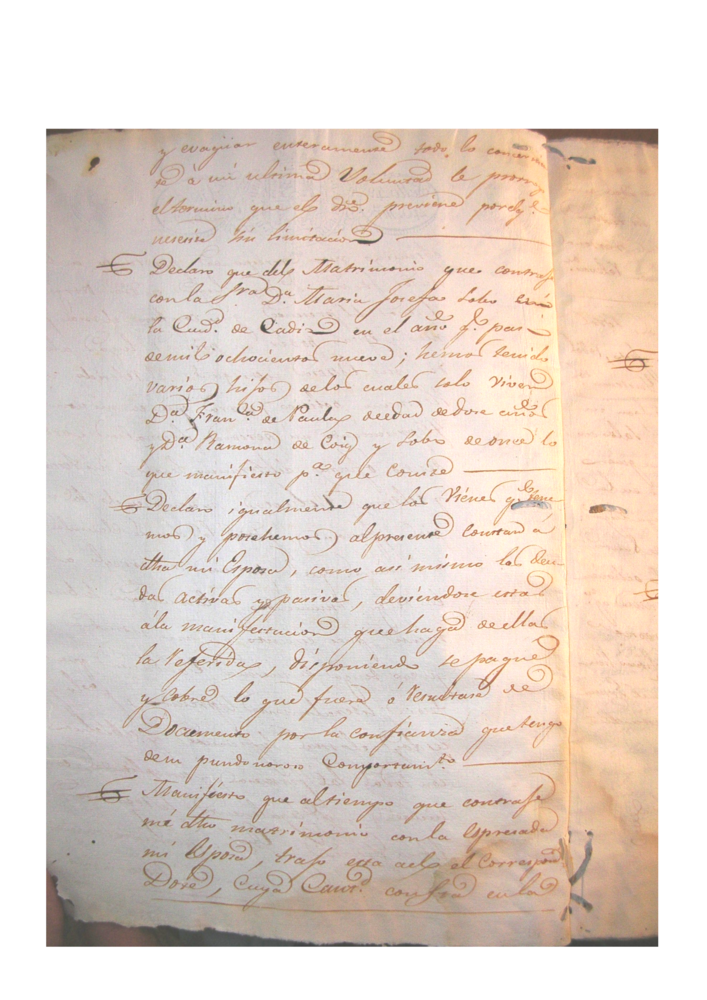 y evaquar enteramente todo lo concern
te á mi ultima Voluntad le prorrg
el termino, que el dro. previene por ley
nesesia sin limitacion
Declaro que del Matrimonio que contraje
con la Sra. Da. Maria Josefa Lobo en
la Ciud. de Cadiz en el año q. pas
de mil ochocientos nueve; hemos tenido
varios hijos de los cuales solo viven
Da. Franca. de Paula de edad de dose años
y Da. Ramona de Coig y Lobo de once lo
que manifiesto pa. que conste
Declaro igualmente que los Vienes q. tene
mos y poshemos al presente constan á
dha mi Esposa, como asi mismo las deu-
das activas y pasivas, deviendose estar
á la manifestacion que haga de ellas
la Referida, disponiendo se pague
y cobre lo que fuere ó resultare de
Documento por la confianza que tengo
de su pundonoroso Comportamto.
Manifiesto que al tiempo que contraje
mi dho matrimonio con la Espresada
mi Esposa, trajo esta a el el Correspond
Dote, Cuya Cant. constra en la